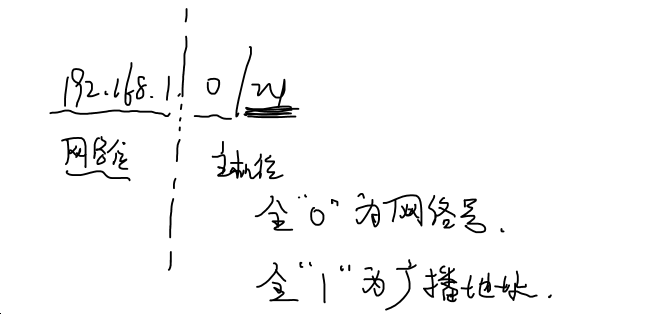 192.168.1.0/24
网络位 主机位
全"0"为网络号.
全"1"为广播地址.